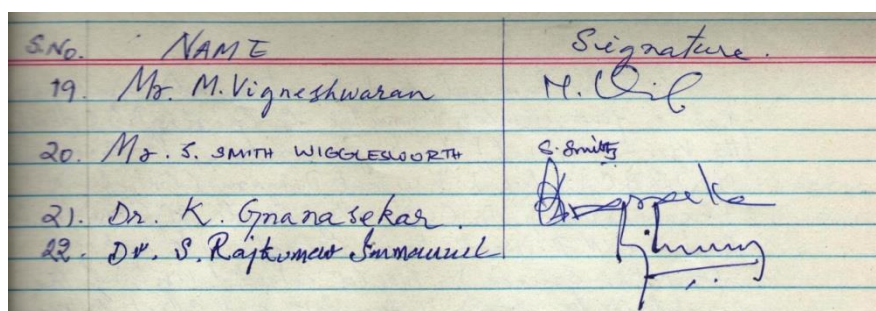 S.No. NAME Signature.
19. Mr. M. Vigneshwaran M. Vig
20. Mr. S. SMITH WIGGLESWORTH S. Smith
21. Dr. K. Gnanasekar.
22. Dr. S. Rajkumar Immanuel